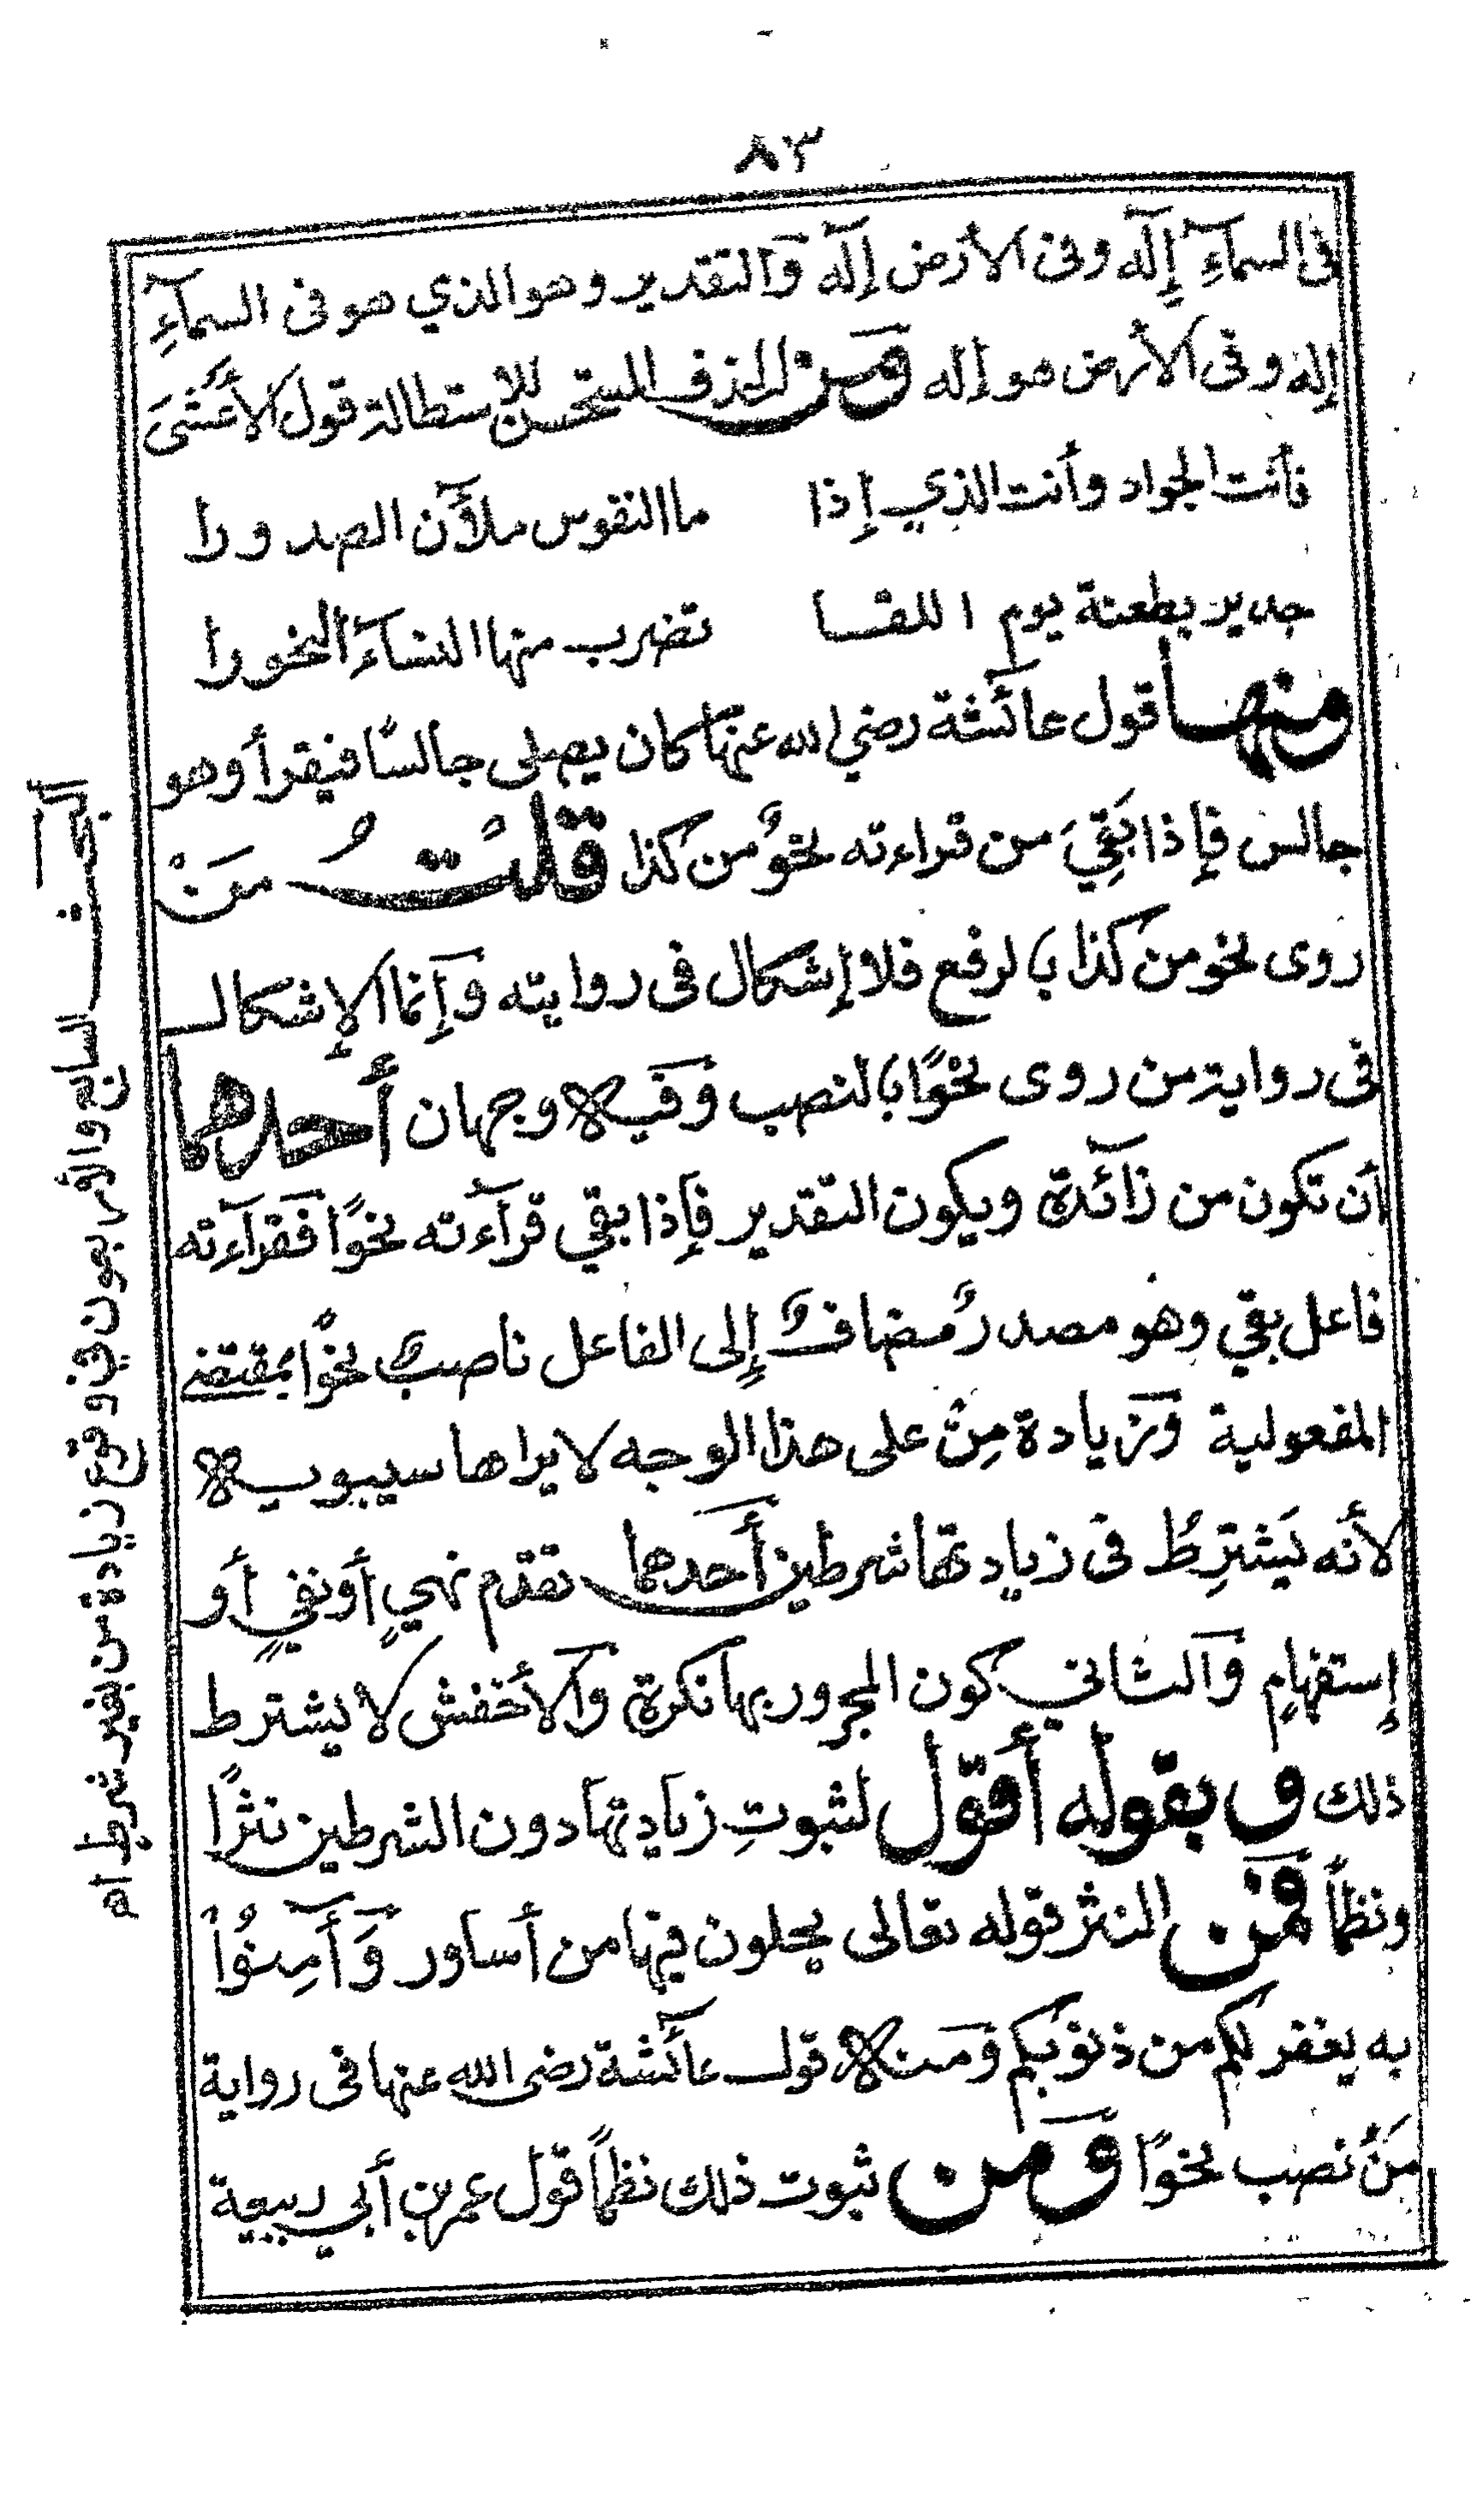 ٨٣
فى السمآءِ إِلَٰه وفى الأرض إلٰه وَالتقدير وهو الذي هو فى السمآءِ
إله وفى الأرض هو إله وَمن الحذف المستحسن للاستطالة قول الأعْشىَ
فأنت الجواد وأنت الذي إذا ما النفوس ملأْن الصدورا
جدير بطعنة يوم اللقا تضرب منها النسآءُ النحورا
ومنها قول عائشة رضي الله عنها كان يصلى جالسًا فيقرأ وهو
جالس فإذا بَقِيَ من قراءته نحوٌ من كذا قلتُ مَنْ
روى نحو من كذا بالرفع فلا إشكال فى روايته وَإِنما الإشكال
فى رواية من روى نحْوًا بالنصب وَفيه وجهان أحدهما
أن تكون من زآئدة ويكون التقدير فإذا بقي قرآءته نحوًا فقرآءته
فاعل بقي وهو مصدرٌ مضافٌ إِلى الفاعل ناصبٌ نحوًا بمقتضى
المفعولية وَزيادة مِنْ على هذا الوجه لا يراها سيبويه
لأنه يَشْترِطُ فى زيادتها شرطين أَحدهما تقدم نهيٍ أو نفيٍ أو
إستفهامٍ وَالثاني كون المجرور بها نكرة وَالأخفش لا يشترط
ذلك وبقوله أقول لثبوتِ زيادتها دون الشرطين نثرًا
ونظمًا فمن النثر قوله تعالى يحلون فيها من أساور وَأَمِنُواْ
به يغفر لكم من ذنوبكم وَمنه قول عائشة رضى الله عنها فى رواية
مَنْ نصب نحوًا وَمن ثبوت ذلك نظمًا قول عمر بن أبي ربيعة
البحث السابع والأربعون في وقوع زيادة من بغير شرط اه